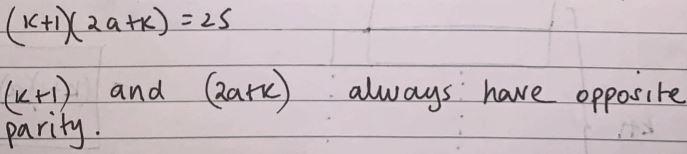 (k+1)(2a+k) = 2S
(k+1) and (2a+k) always have opposite
parity.